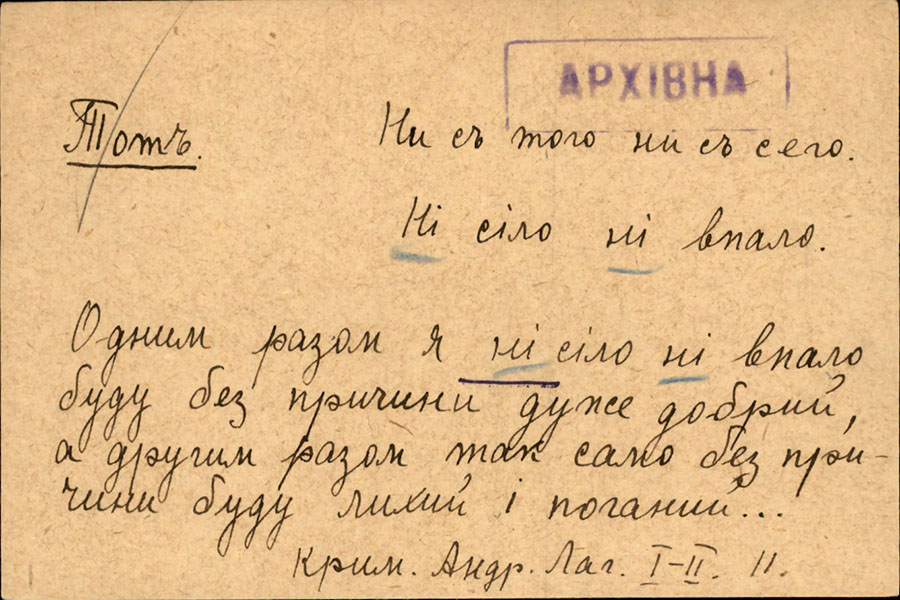 АРХІВНА
Тотъ. Ни съ того ни съ сего.
Ні сіло ні впало.
Одним разом я ні сіло ні впало
буду без причини дуже добрий,
а другим разом так само без при-
чини буду лихий і поганий...
Крим. Андр. Лаг. I-II. 11.